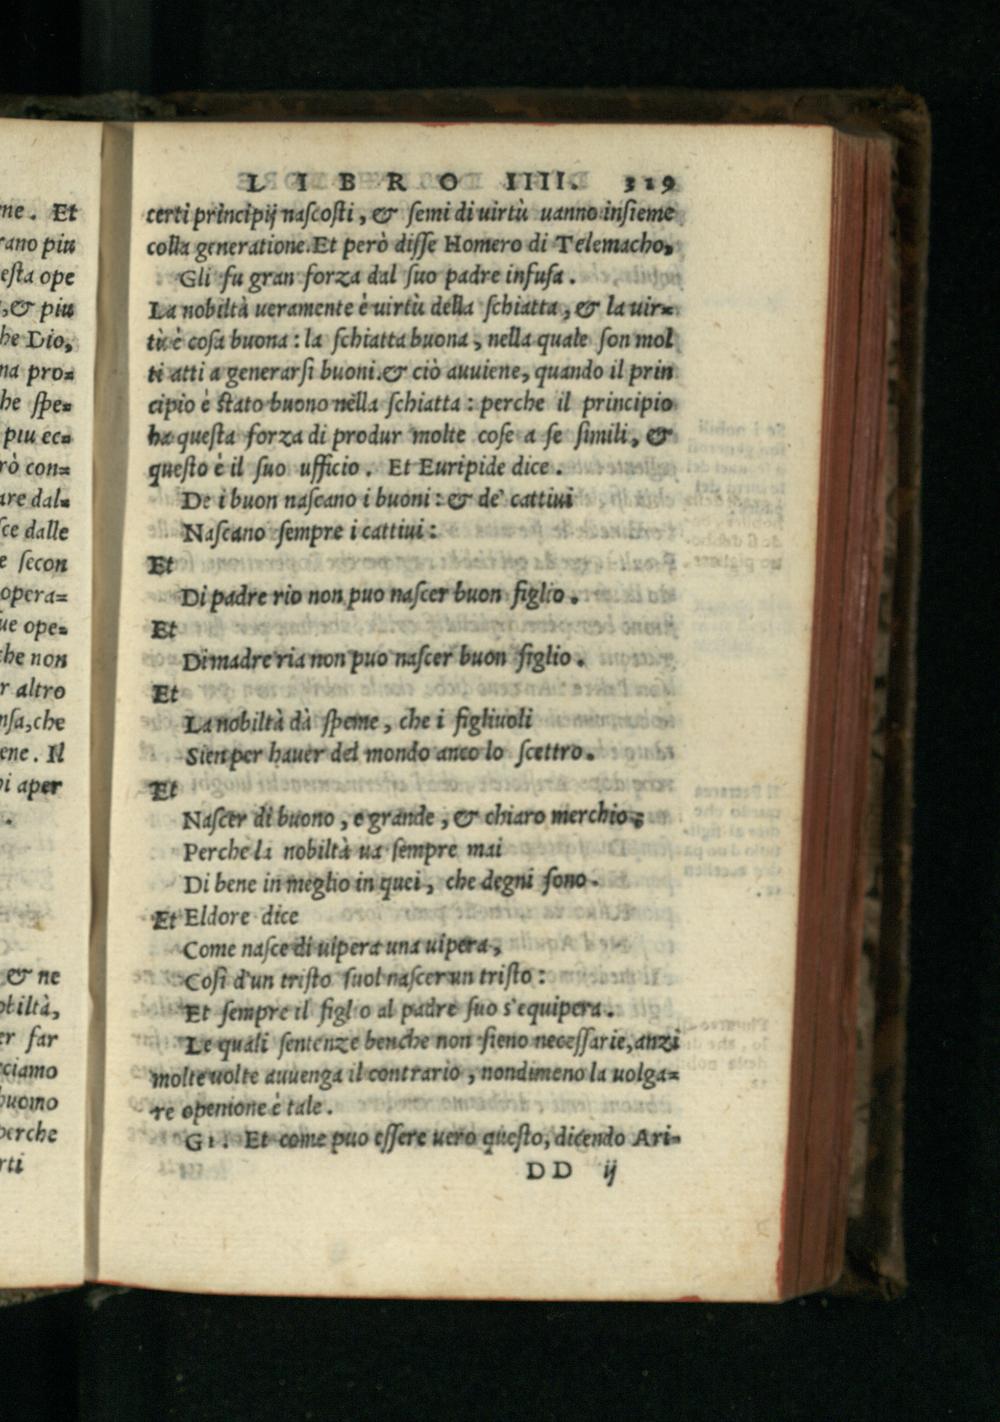 ne. Et
rano piu
esta ope
, & piu
he Dio,
na pro=
he spe=
piu ec=
rò con=
are dal=
sce dalle
e secon
opera=
ue ope=
che non
r altro
nsa, che
ene. Il
i aper
.
& ne
obiltà,
er far
ciamo
huomo
perche
rti
LIBRO IIII. 319
certi principij nascosti, & semi di uirtù uanno insieme
colla generatione. Et però disse Homero di Telemacho,
Gli fu gran forza dal suo padre infusa.
La nobiltà ueramente è uirtù della schiatta, & la uir=
tù è cosa buona: la schiatta buona, nella quale son mol
ti atti a generarsi buoni. & ciò auuiene, quando il prin
cipio è stato buono nella schiatta: perche il principio
ha questa forza di produr molte cose a se simili, &
questo è il suo ufficio. Et Euripide dice.
De i buon nascano i buoni: & de' cattiui
Nascano sempre i cattiui:
Et
Di padre rio non puo nascer buon figlio.
Et
Di madre ria non puo nascer buon figlio.
Et
La nobiltà dà speme, che i figliuoli
Sien per hauer del mondo anco lo scettro.
Et
Nascer di buono, e grande, & chiaro merchio;
Perche la nobiltà ua sempre mai
Di bene in meglio in quei, che degni sono.
Et Eldore dice
Come nasce di uipera una uipera,
Cosi d'un tristo suol nascer un tristo:
Et sempre il figlio al padre suo s'equipera.
Le quali sentenze benche non sieno necessarie, anzi
molte uolte auuenga il contrario, nondimeno la uolga=
re openione è tale.
GI. Et come puo essere uero questo, dicendo Ari=
DD ij